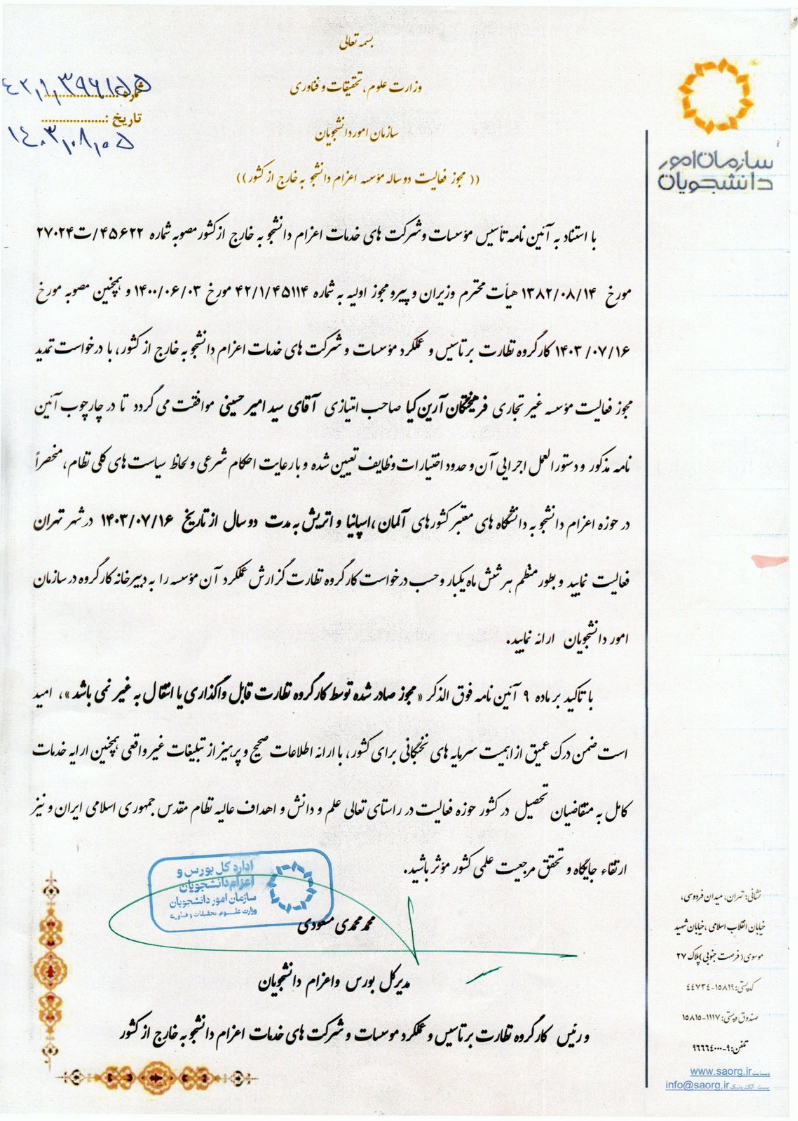 بسمه تعالی
وزارت علوم، تحقیقات و فناوری
سازمان امور دانشجویان
(( مجوز فعالیت دو ساله مؤسسه اعزام دانشجو به خارج از کشور ))
شماره: ۴۲/۱/۳۹۶۱۵۵
تاریخ: ۱۴۰۳/۰۸/۰۵
سازمان امور
دانشجویان
با استناد به آئین نامه تأسیس مؤسسات و شرکت های خدمات اعزام دانشجو به خارج از کشور مصوبه شماره ۴۵۶۲۲/ت۲۷۰۲۴
مورخ ۱۳۸۲/۰۸/۱۴ هیأت محترم وزیران و پیرو مجوز اولیه به شماره ۴۲/۱/۴۵۱۱۴ مورخ ۱۴۰۰/۰۶/۰۳ و همچنین مصوبه مورخ
۱۴۰۳/۰۷/۱۶ کارگروه نظارت بر تاسیس و عملکرد مؤسسات و شرکت های خدمات اعزام دانشجو به خارج از کشور، با درخواست تمدید
مجوز فعالیت مؤسسه غیر تجاری فرهیختگان آرین کیا صاحب امتیازی آقای سید امیر حسینی موافقت می گردد تا در چارچوب آئین
نامه مذکور و دستورالعمل اجرایی آن و حدود اختیارات وظایف تعیین شده و با رعایت احکام شرعی و لحاظ سیاست های کلی نظام، منحصراً
در حوزه اعزام دانشجو به دانشگاه های معتبر کشورهای آلمان، اسپانیا و اتریش به مدت دو سال از تاریخ ۱۴۰۳/۰۷/۱۶ در شهر تهران
فعالیت نمایید و بطور منظم هر شش ماه یکبار و حسب درخواست کارگروه نظارت گزارش عملکرد آن مؤسسه را به دبیرخانه کارگروه در سازمان
امور دانشجویان ارائه نمایید.
با تاکید بر ماده ۹ آئین نامه فوق الذکر «مجوز صادر شده توسط کارگروه نظارت قابل واگذاری یا انتقال به غیر نمی باشد»، امید
است ضمن درک عمیق از اهمیت سرمایه های نخبگانی برای کشور، با ارائه اطلاعات صحیح و پرهیز از تبلیغات غیر واقعی همچنین ارایه خدمات
کامل به متقاضیان تحصیل در کشور حوزه فعالیت در راستای تعالی علم و دانش و اهداف عالیه نظام مقدس جمهوری اسلامی ایران و نیز
ارتقاء جایگاه و تحقق مرجعیت علمی کشور مؤثر باشید.
اداره کل بورس و
اعزام دانشجویان
سازمان امور دانشجویان
وزارت علوم، تحقیقات و فناوری
محمد محمدی مسعودی
مدیرکل بورس و اعزام دانشجویان
و رئیس کارگروه نظارت بر تاسیس و عملکرد موسسات و شرکت های خدمات اعزام دانشجو به خارج از کشور
نشانی: تهران، میدان فردوسی،
خیابان انقلاب اسلامی، خیابان شهید
موسوی (فرصت جنوبی) پلاک ۲۷
کدپستی: ۱۵۸۱۹-۴۴۷۳۴
صندوق پستی: ۱۱۱۷-۱۵۸۱۵
تلفن: ۹-۹۶۶۶۴۰۰۰
www.saorg.ir
info@saorg.ir